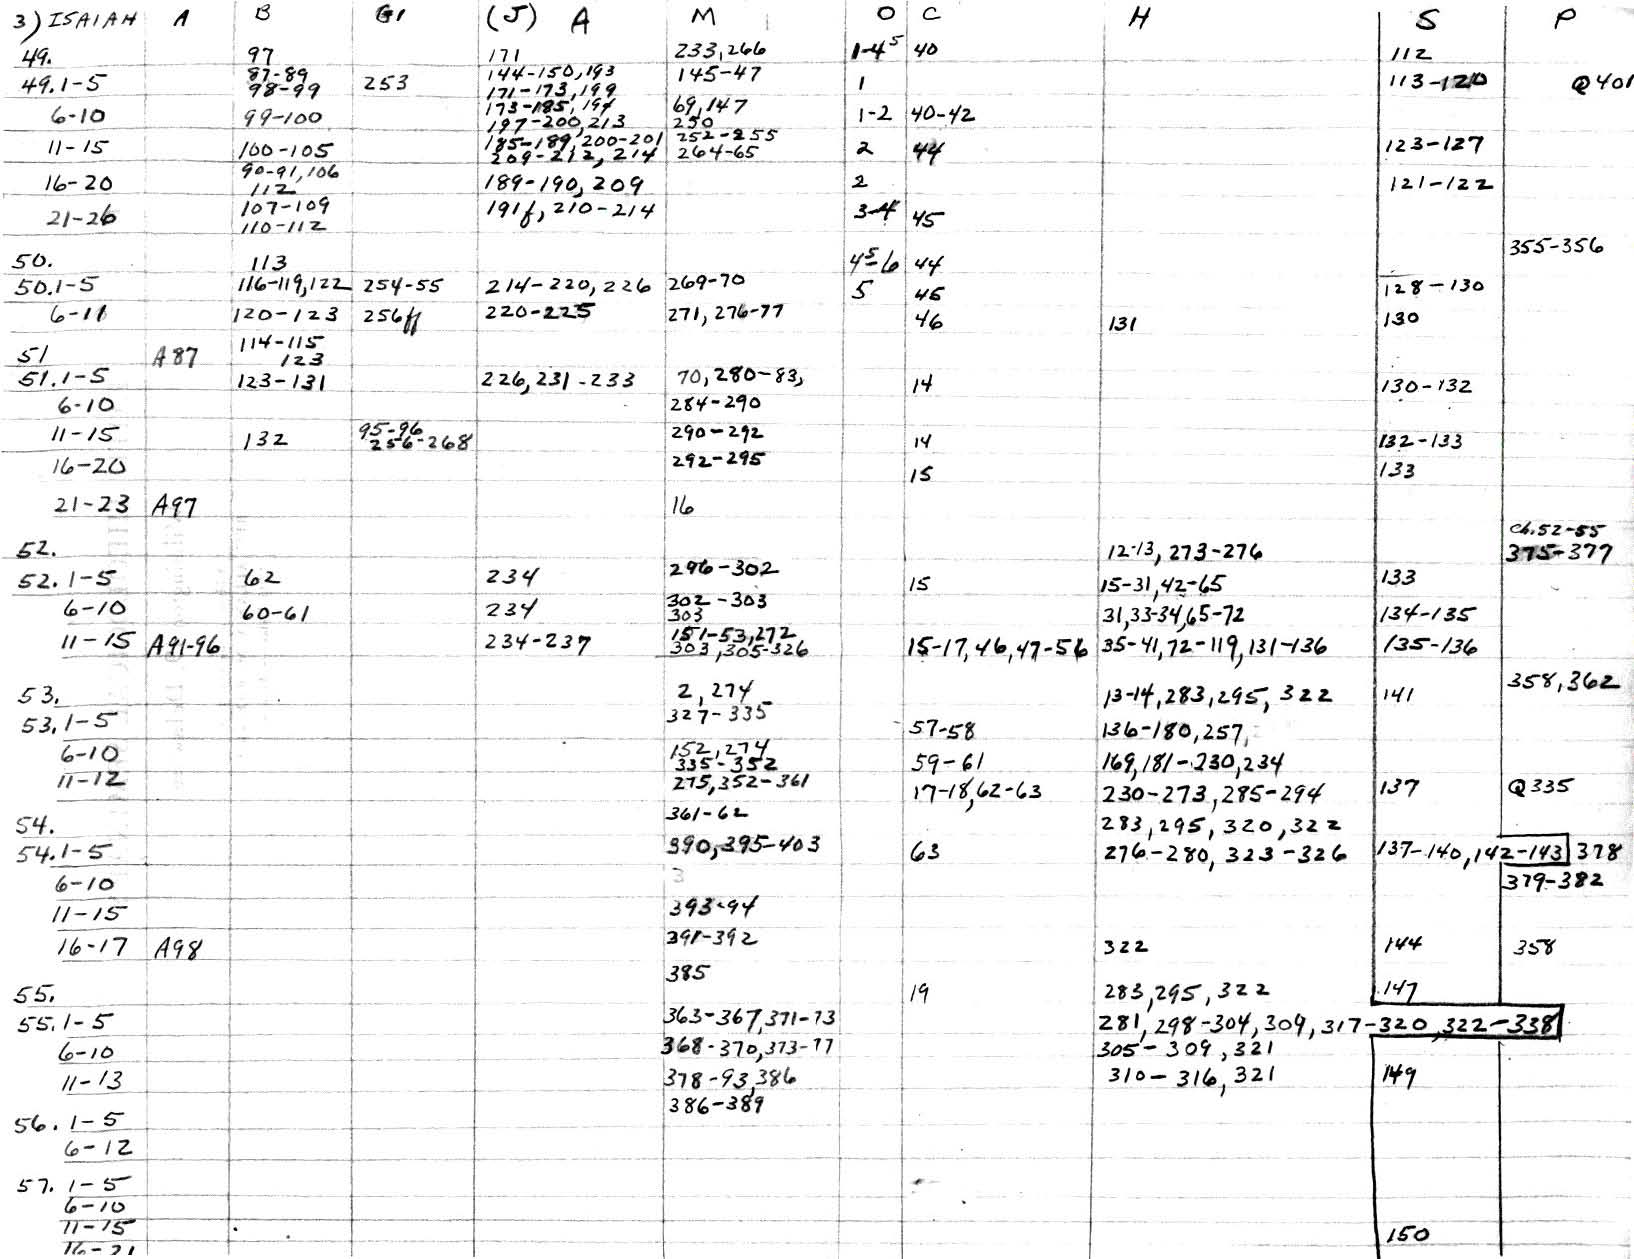 3) ISAIAH A B G1 (J) A M O C H S P
49. 97 171 233,266 1-4⁵ 40 112
49.1-5 87-89 98-99 253 144-150,193 171-173,199 145-47 1 113-120 Q401
6-10 99-100 173-185,194 197-200,213 69,147 250 1-2 40-42
11-15 100-105 185-189,200-201 209-212,214 252-255 264-65 2 44 123-127
16-20 90-91,106 112 189-190,209 2 121-122
21-26 107-109 110-112 191f,210-214 3-4 45
355-356
50. 113 4⁵-6 44
50.1-5 116-119,122 254-55 214-220,226 269-70 5 45 128-130
6-11 120-123 256ff 220-225 271,276-77 46 131 130
51 A87 114-115 123
51.1-5 123-131 226,231-233 70,280-83, 14 130-132
6-10 284-290
11-15 132 95-96 256-268 290-292 14 132-133
16-20 292-295 15 133
21-23 A97 16
Ch.52-55
52. 12-13,273-276 375-377
52.1-5 62 234 296-302 15 15-31,42-65 133
6-10 60-61 234 302-303 303 31,33-34,65-72 134-135
11-15 A91-96 234-237 151-53,272 303,305-326 15-17,46,47-56 35-41,72-119,131-136 135-136
53. 2,274 13-14,283,295,322 141 358,362
53.1-5 327-335 57-58 136-180,257,
6-10 152,274 335-352 59-61 169,181-230,234
11-12 275,352-361 17-18,62-63 230-273,285-294 137 Q335
54. 361-62 283,295,320,322
54.1-5 390,395-403 63 276-280,323-326 137-140,142-143 378
6-10 3 379-382
11-15 393-94
16-17 A98 391-392 322 144 358
385
55. 19 283,295,322 147
55.1-5 363-367,371-73 281,298-304,309,317-320,322-338
6-10 368-370,373-77 305-309,321
11-13 378-93,386 310-316,321 149
56.1-5 386-389
6-12
57.1-5
6-10
11-15 150
16-21